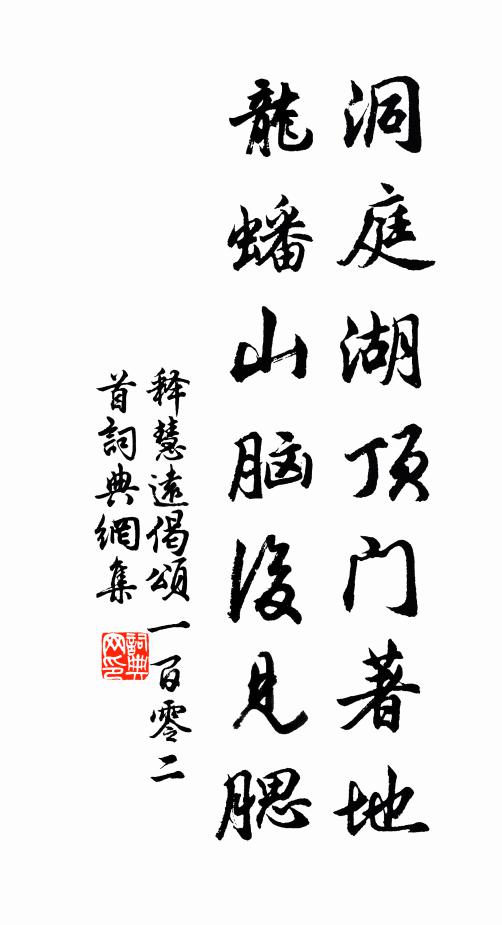 洞庭湖顶门著地
龍蟠山脑後見腮
释慧遠偈頌一百零二
首詞典網集
詞典网印